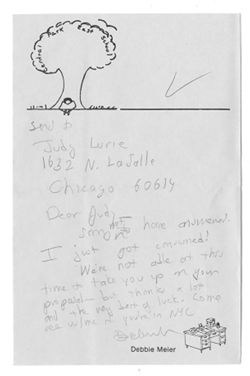 Central Park East School
Send to
Judy Lurie
1632 N. LaSalle
Chicago 60614
Dear Judy
Sorry not to have answered.
I just got
We're not able at this
time to take you up on your
proposal — but thanks a lot
and the very best of luck. Come
see us/me if you're in NYC
Deborah
Debbie Meier